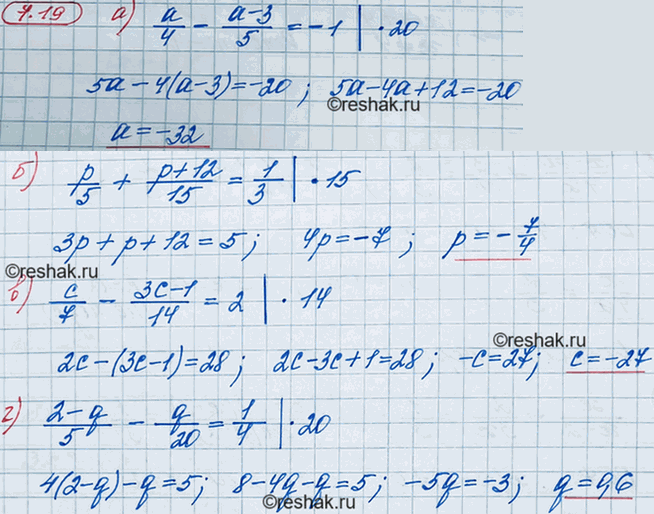 7.19 а) a/4 - (a-3)/5 = -1 | · 20
5a - 4(a-3) = -20 ; 5a - 4a + 12 = -20
©reshak.ru
a = -32
б) p/5 + (p+12)/15 = 1/3 | · 15
3p + p + 12 = 5 ; 4p = -7 ; p = -7/4
©reshak.ru
в) c/7 - (3c-1)/14 = 2 | · 14
©reshak.ru
2c - (3c-1) = 28 ; 2c - 3c + 1 = 28 ; -c = 27 ; c = -27
г) (2-q)/5 - q/20 = 1/4 | · 20
4(2-q) - q = 5 ; 8 - 4q - q = 5 ; -5q = -3 ; q = 0,6
©reshak.ru